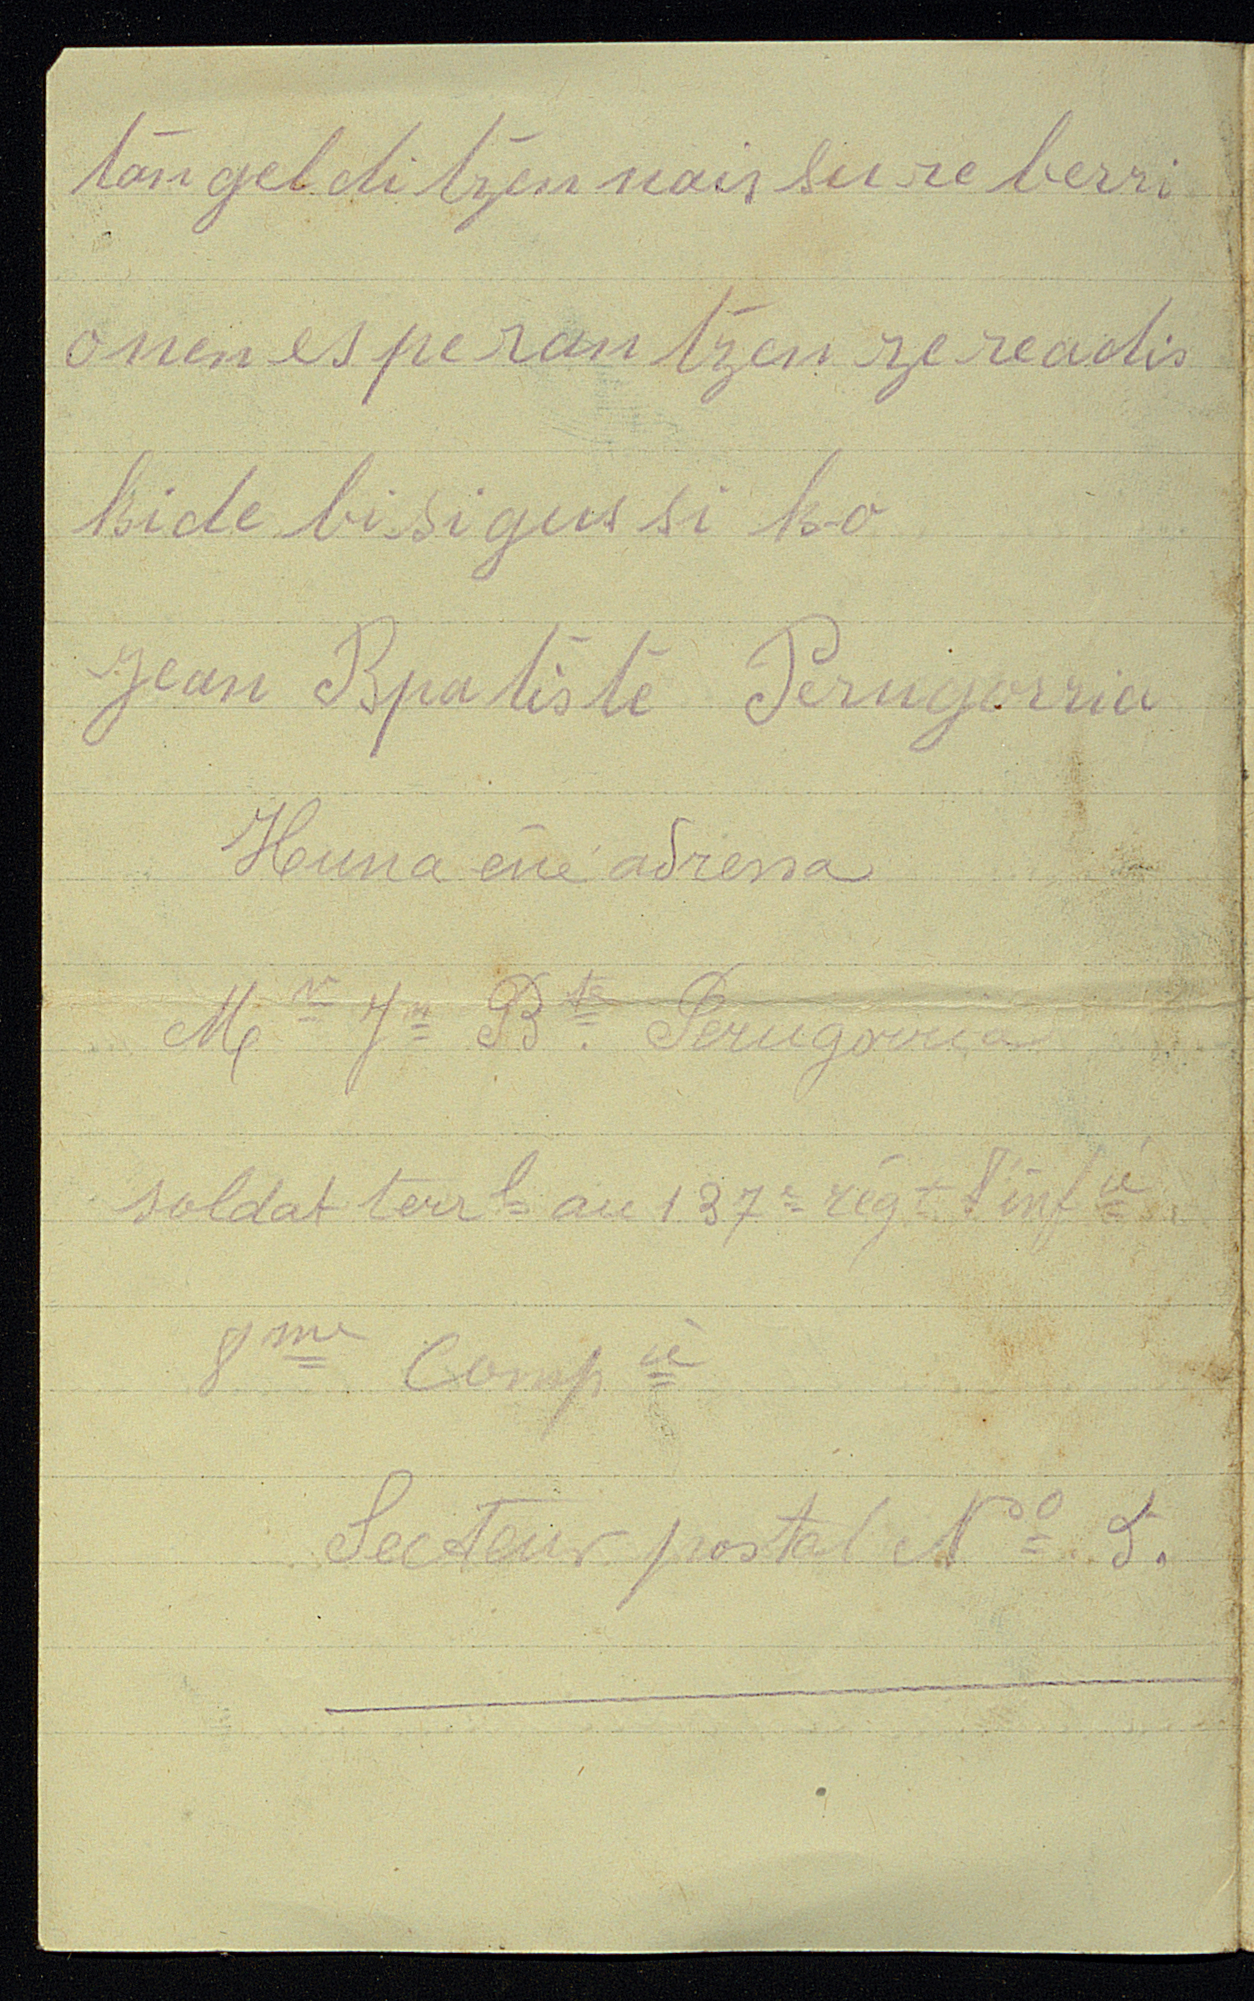 tan geldi tzen nais su re berri
onen esperan tzen ze readis
kide bisigus si ko
Jean Bpatiste Perugorria
Huna ene adressa
Mr Jn Bte. Perugorria
soldat terrl au 137e régt d'infie.
8me Compie
Secteur postal No 5.